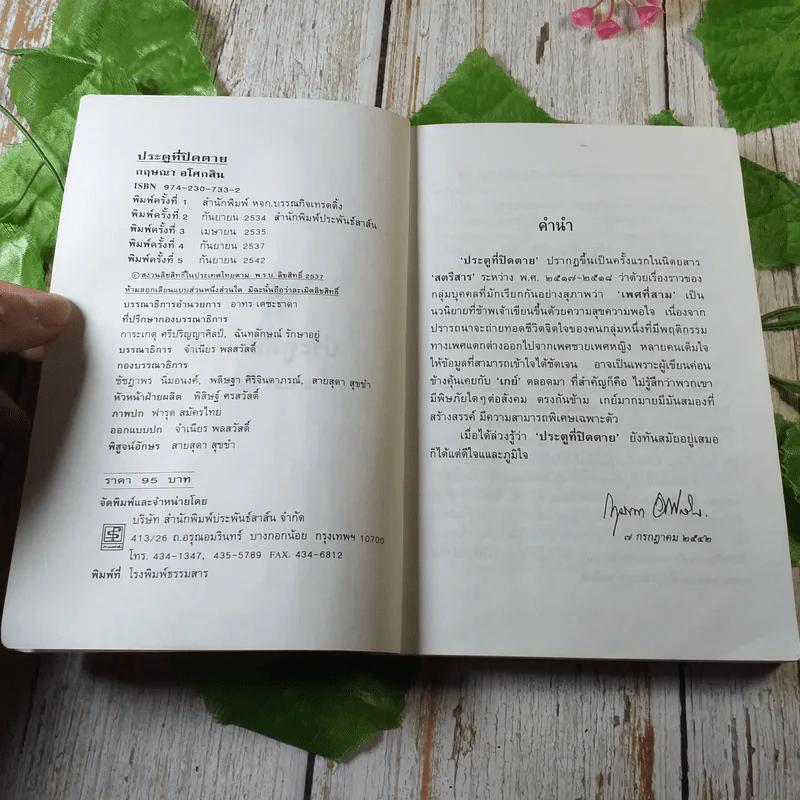 ประตูที่ปิดตาย
กฤษณา อโศกสิน
ISBN 974-230-733-2
พิมพ์ครั้งที่ 1 สำนักพิมพ์ หจก.บรรณกิจเทรดดิ้ง
พิมพ์ครั้งที่ 2 กันยายน 2534 สำนักพิมพ์ประพันธ์สาส์น
พิมพ์ครั้งที่ 3 เมษายน 2535
พิมพ์ครั้งที่ 4 กันยายน 2537
พิมพ์ครั้งที่ 5 กันยายน 2542
© สงวนลิขสิทธิ์ในประเทศไทยตาม พ.ร.บ. ลิขสิทธิ์ 2537
ห้ามลอกเลียนแบบส่วนหนึ่งส่วนใด มิฉะนั้นถือว่าละเมิดลิขสิทธิ์
บรรณาธิการอำนวยการ อาทร เตชะธาดา
ที่ปรึกษากองบรรณาธิการ
การะเกตุ ศรีปริญญาศิลป์, ฉันทลักษณ์ รักษาอยู่
บรรณาธิการ จำเนียร พลสวัสดิ์
กองบรรณาธิการ
ชัชฎาพร นิ่มอนงค์, พลิษฐา ศิริจินดาภรณ์, สายสุดา สุขขำ
หัวหน้าฝ่ายผลิต พิสิษฐ์ ศรสวัสดิ์
ภาพปก ฟารุต สมัครไทย
ออกแบบปก จำเนียร พลสวัสดิ์
พิสูจน์อักษร สายสุดา สุขขำ
ราคา 95 บาท
จัดพิมพ์และจำหน่ายโดย
บริษัท สำนักพิมพ์ประพันธ์สาส์น จำกัด
413/26 ถ.อรุณอมรินทร์ บางกอกน้อย กรุงเทพฯ 10700
โทร. 434-1347, 435-5789 FAX. 434-6812
พิมพ์ที่ โรงพิมพ์ธรรมสาร
คำนำ
'ประตูที่ปิดตาย' ปรากฏขึ้นเป็นครั้งแรกในนิตยสาร
'สตรีสาร' ระหว่าง พ.ศ. ๒๕๑๗-๒๕๑๘ ว่าด้วยเรื่องราวของ
กลุ่มบุคคลที่มักเรียกกันอย่างสุภาพว่า 'เพศที่สาม' เป็น
นวนิยายที่ข้าพเจ้าเขียนขึ้นด้วยความสุขความพอใจ เนื่องจาก
ปรารถนาจะถ่ายทอดชีวิตจิตใจของคนกลุ่มหนึ่งที่มีพฤติกรรม
ทางเพศแตกต่างออกไปจากเพศชายเพศหญิง หลายคนเต็มใจ
ให้ข้อมูลที่สามารถเข้าใจได้ชัดเจน อาจเป็นเพราะผู้เขียนค่อน
ข้างคุ้นเคยกับ 'เกย์' ตลอดมา ที่สำคัญก็คือ ไม่รู้สึกว่าพวกเขา
มีพิษภัยใดๆต่อสังคม ตรงกันข้าม เกย์มากมายมีมันสมองที่
สร้างสรรค์ มีความสามารถพิเศษเฉพาะตัว
เมื่อได้ล่วงรู้ว่า 'ประตูที่ปิดตาย' ยังทันสมัยอยู่เสมอ
ก็ได้แต่ดีใจและภูมิใจ
๗ กรกฎาคม ๒๕๔๒